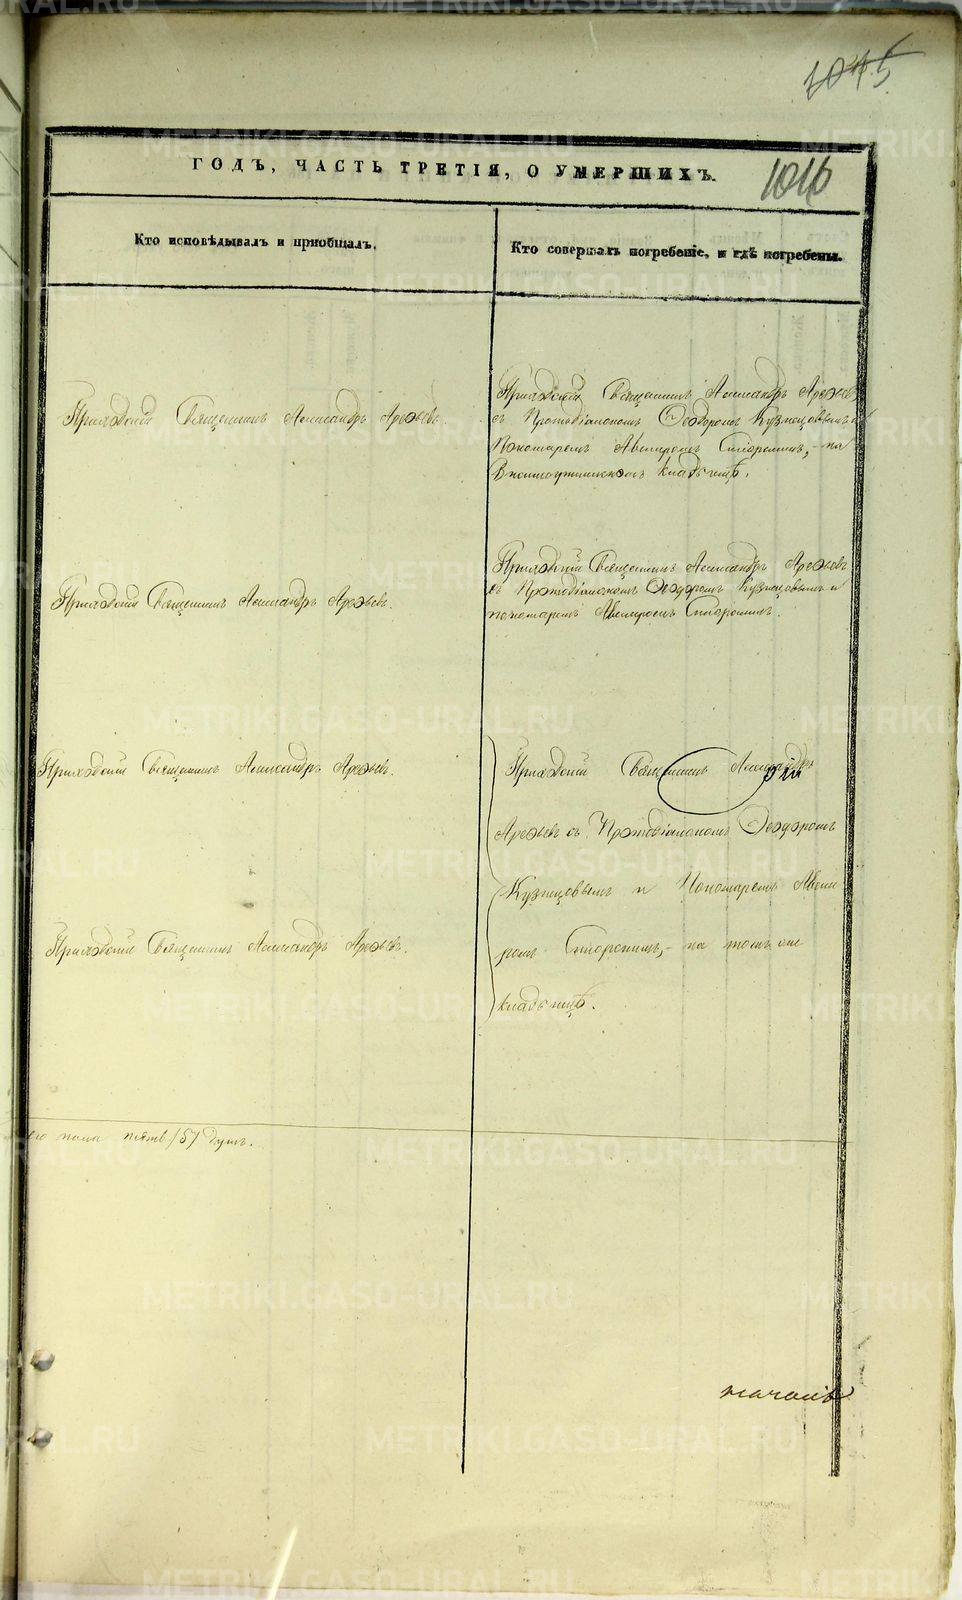 1015
ГОДЪ, ЧАСТЬ ТРЕТІЯ, О УМЕРШИХЪ.
1016
Кто исповѣдывалъ и приобщалъ.
Кто совершалъ погребеніе, и гдѣ погребены.
Приходскій Священникъ Александръ Арефьевъ.
Приходскій Священникъ Александръ Арефьевъ
съ Протодіакономъ Ѳеодоромъ Кузнецовымъ и
Пономаремъ
кладбищѣ.
Приходскій Священникъ Александръ Арефьевъ.
Приходскій Священникъ Александръ Арефьевъ
съ Протодіакономъ Ѳеодоромъ Кузнецовымъ и
пономаремъ
Приходскій Священникъ Александръ Арефьевъ.
Приходскій Священникъ Александръ
Арефьевъ съ Протодіакономъ Ѳеодоромъ
Кузнецовымъ и Пономаремъ
на томъ же
кладбищѣ.
Приходскій Священникъ Александръ Арефьевъ.
пола пять /5/ душъ.
METRIKI.GASO-URAL.RU